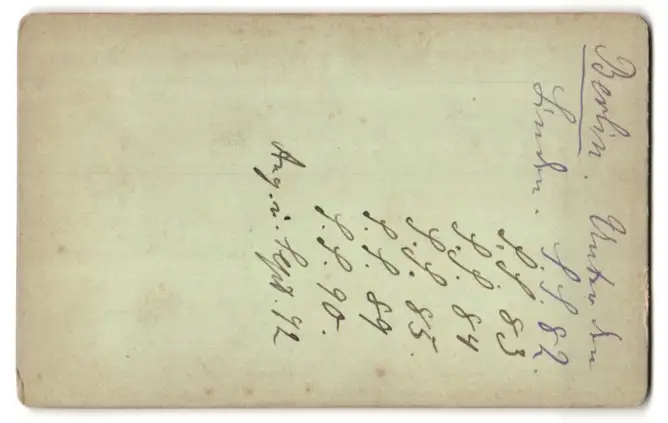 Berlin. Unter den
Linden. S. S. 82.
S. S. 83.
S. S. 84
S. S. 85.
S. S. 89
S. S. 90.
Aug. u. Sept. 92